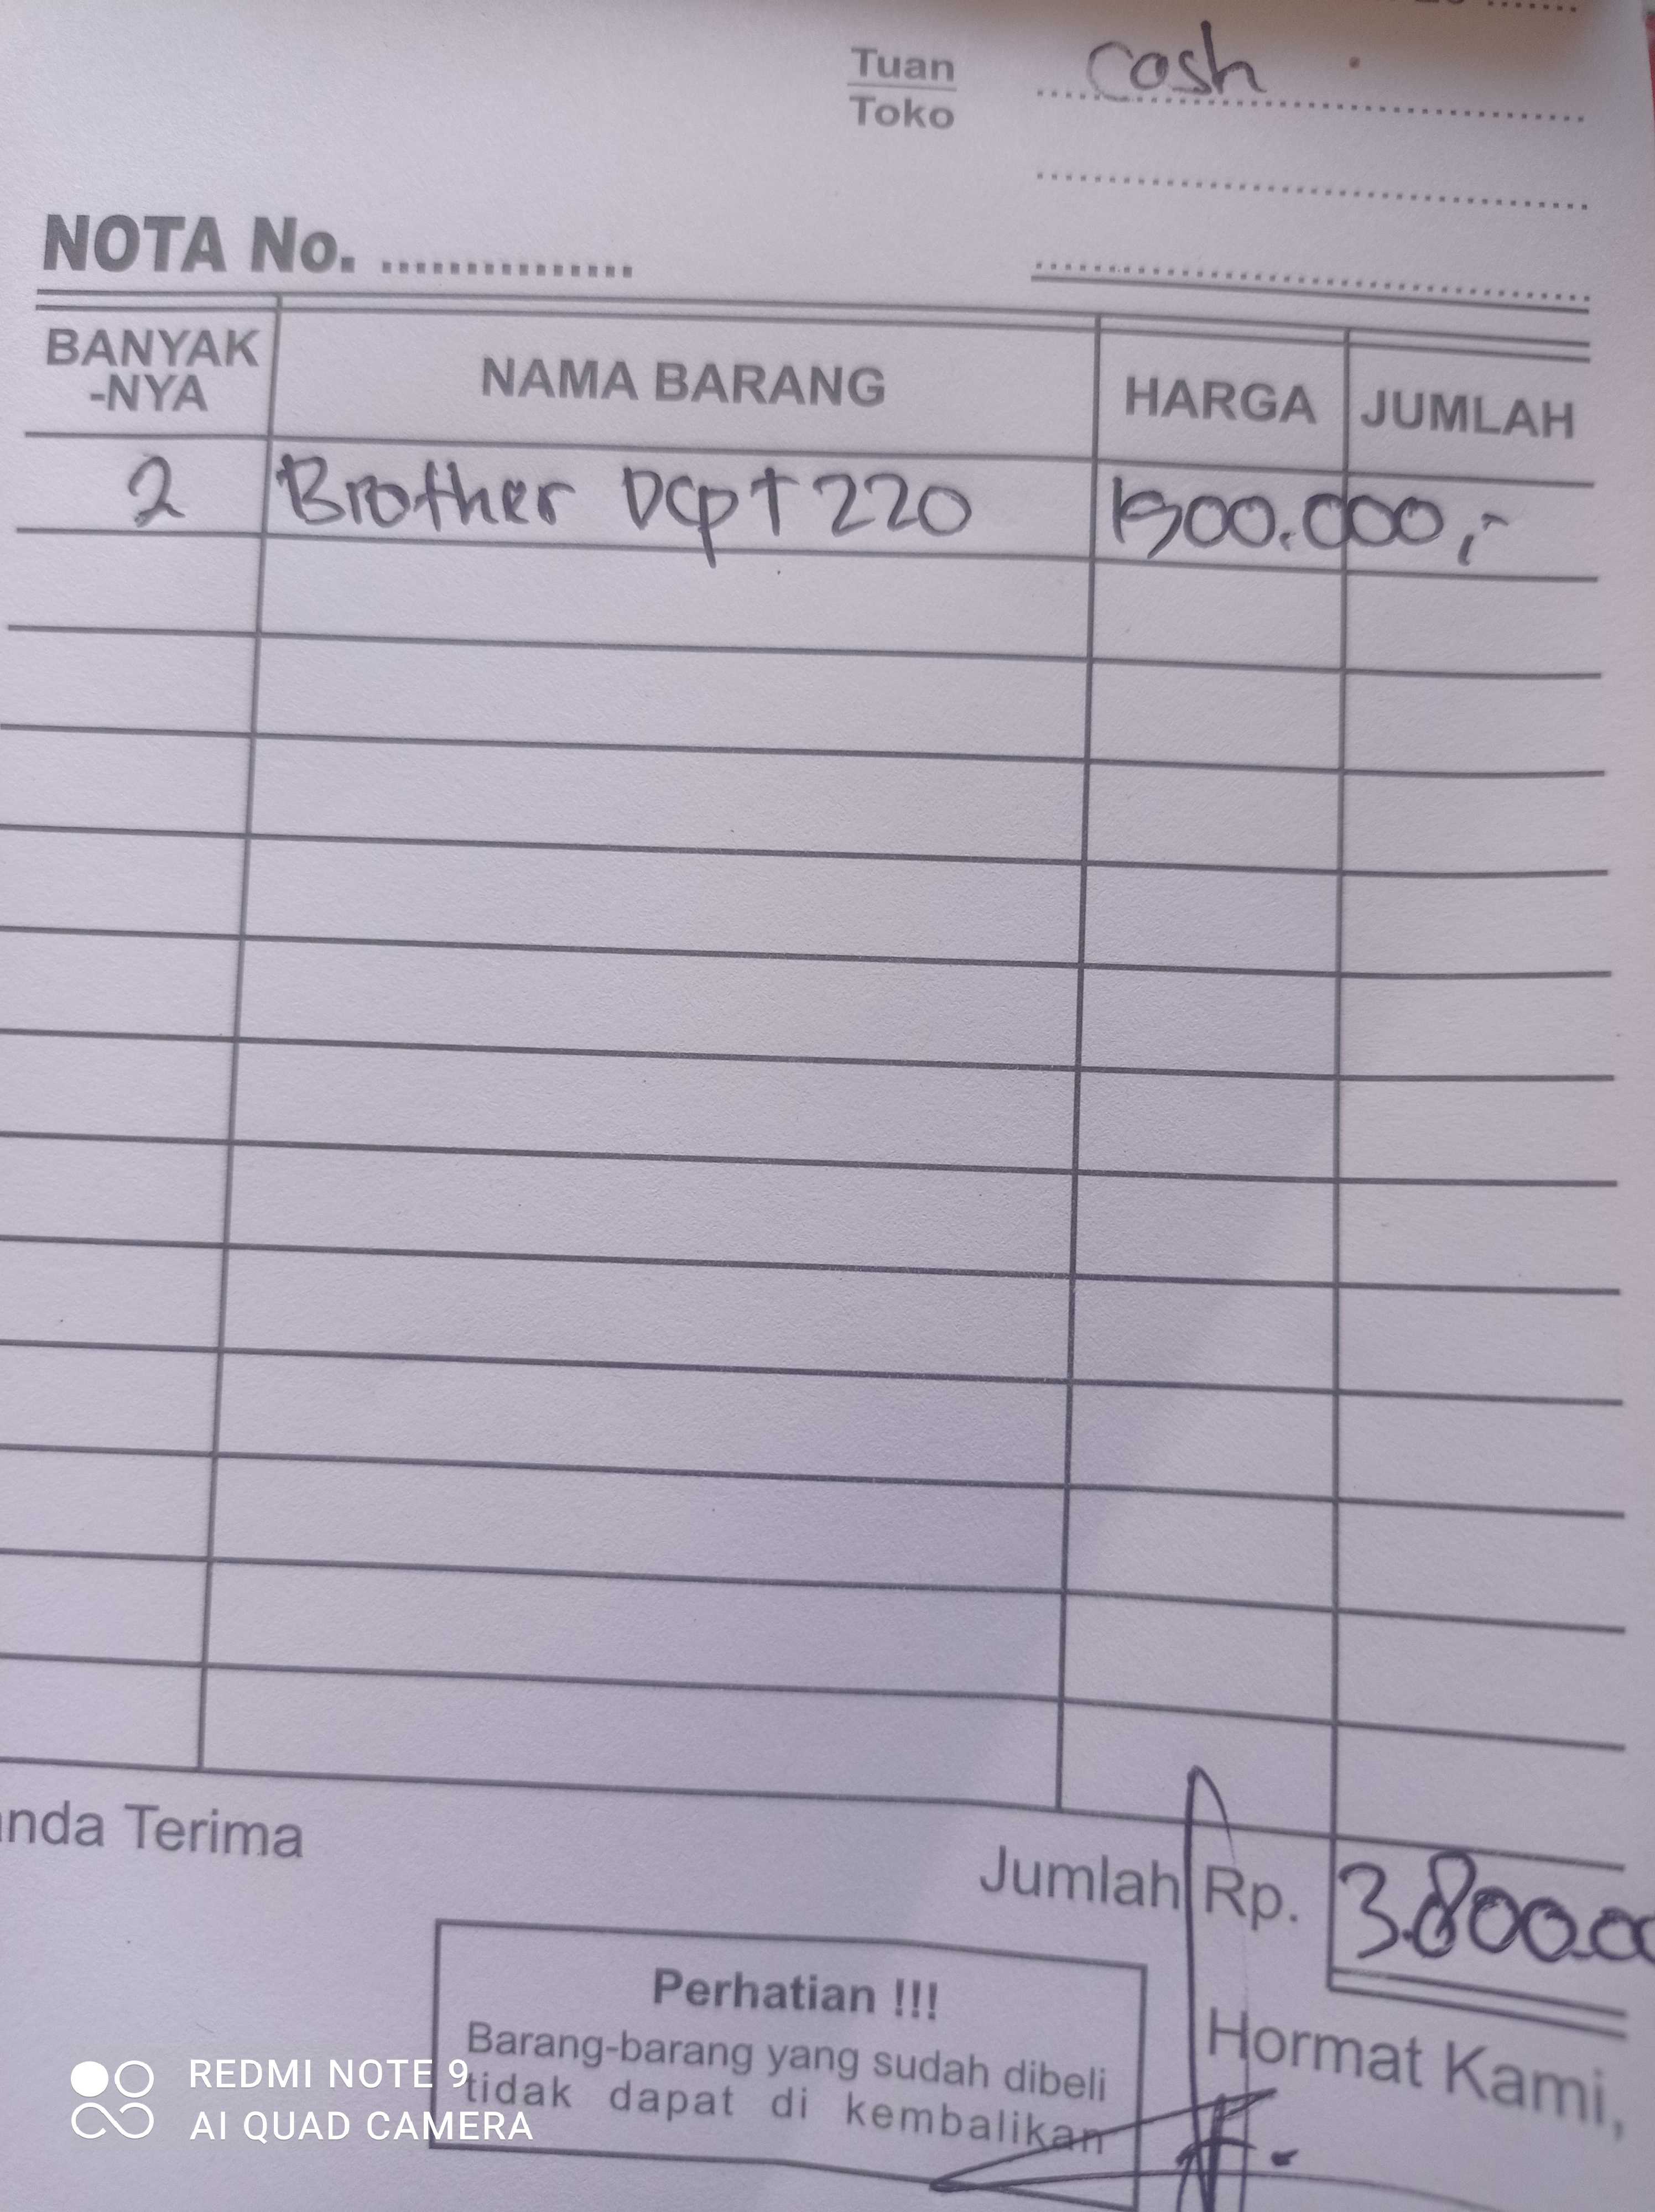 Tuan cash
Toko
NOTA No. ...............
BANYAK -NYA NAMA BARANG HARGA JUMLAH
2 Brother Dcp T 220 1900.000,-
anda Terima
Jumlah Rp. 3.800.00
Perhatian !!!
Barang-barang yang sudah dibeli
tidak dapat di kembalikan
Hormat Kami,
REDMI NOTE 9
AI QUAD CAMERA